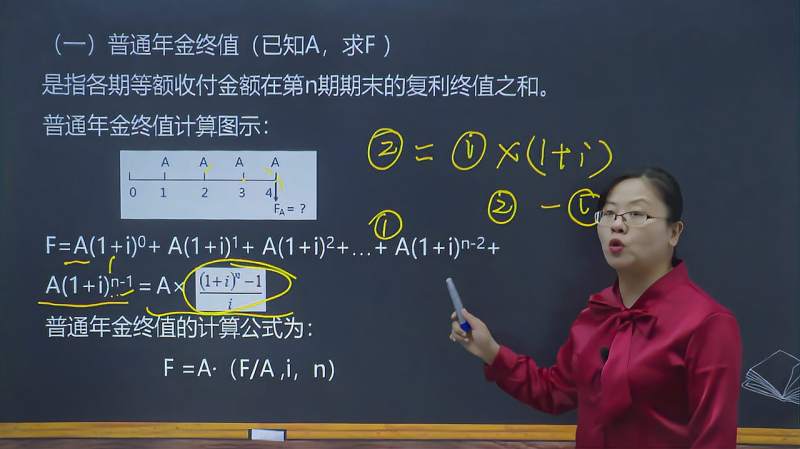 （一）普通年金终值（已知A，求F ）
是指各期等额收付金额在第n期期末的复利终值之和。
普通年金终值计算图示：
A A A A
0 1 2 3 4
F_A = ?
② = ① ×(1+i)
② - ①
①
F=A(1+i)⁰+ A(1+i)¹+ A(1+i)²+...+ A(1+i)ⁿ⁻²+
A(1+i)ⁿ⁻¹ = A× ((1+i)ⁿ −1)/i
普通年金终值的计算公式为：
F =A·（F/A ,i，n）